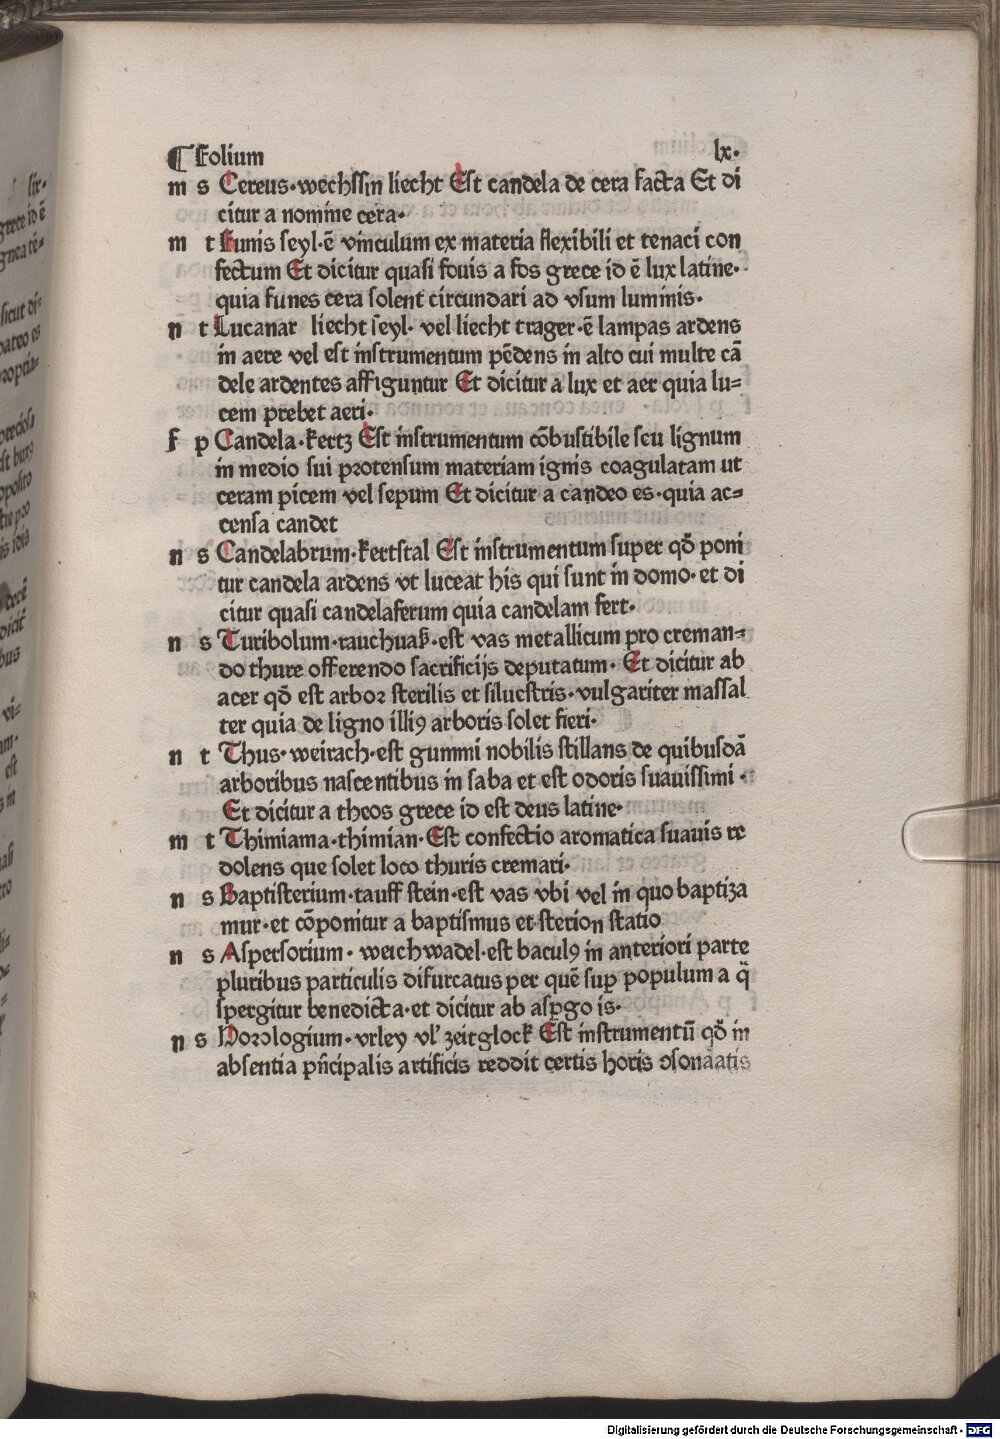 ¶ Folium lx·
m s Cereus·wechſſin liecht Eſt candela de cera facta Et di
citur a nomine cera·
m t Funis ſeyl·ē vinculum ex materia flexibili et tenaci con
fectum Et dicitur quaſi fouis a fos grece id ē lux latine·
quia funes cera ſolent circundari ad vſum luminis·
n t Lucanar liecht ſeyl· vel liecht trager·ē lampas ardens
in aere vel eſt inſtrumentum pēdens in alto cui multe cā
dele ardentes affiguntur Et dicitur a lux et aer quia lu=
cem prebet aeri·
f p Candela·kertz Eſt inſtrumentum cōbuſtibile ſeu lignum
in medio ſui protenſum materiam ignis coagulatam ut
ceram picem vel ſepum Et dicitur a candeo es·quia ac=
cenſa candet
n s Candelabrum·kertſtal Eſt inſtrumentum ſuper qd̄ poni
tur candela ardens vt luceat his qui ſunt in domo·et di
citur quaſi candelaferum quia candelam fert·
n s Turibolum·rauchuaß·eſt vas metallicum pro creman=
do thure offerendo ſacrificijs deputatum· Et dicitur ab
acer qd̄ eſt arboꝛ ſterilis et ſilueſtris·vulgariter maſſal
ter quia de ligno illiꝰ arboris ſolet fieri·
n t Thus·weirach·eſt gummi nobilis ſtillans de quibuſdā
arboribus naſcentibus in ſaba et eſt odoris ſuauiſſimi·
Et dicitur a theos grece id eſt deus latine·
m t Thimiama·thimian·Eſt confectio aromatica ſuauis re
dolens que ſolet loco thuris cremari·
n s Baptiſterium·tauff ſtein·eſt vas vbi vel in quo baptiza
mur·et cōponitur a baptiſmus et·ſterion ſtatio
n s Aſperſorium·weichwadel·eſt baculꝰ in anteriori parte
pluribus particulis difurcatus per quē ſuꝑ populum a q̄
ſpergitur benedicta·et dicitur ab aſꝑgo is·
n s Horologium·vrley vl' zeitglock Eſt inſtrumentū qd̄ in
abſentia pñcipalis artificis reddit certis horis ꝯſonāatis
Digitalisierung gefördert durch die Deutsche Forschungsgemeinschaft · DFG